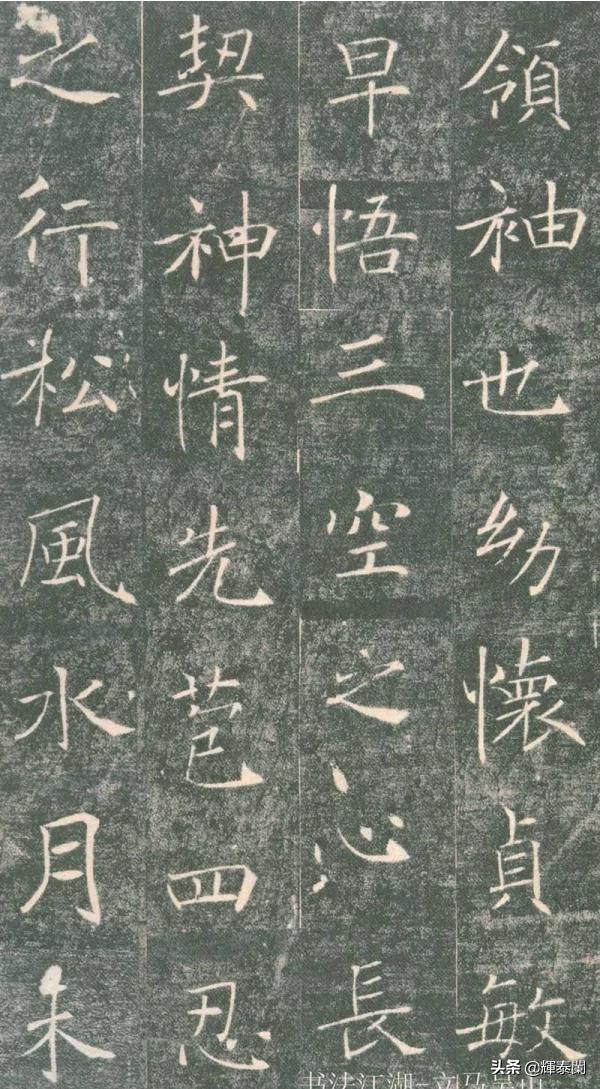 領袖也幼懷貞敏
早悟三空之心長
契神情先苞四忍
之行松風水月未
头条 @輝泰閿